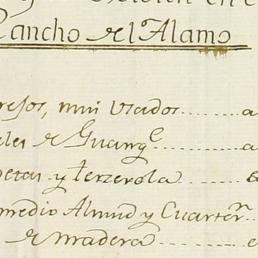 Rancho del Alamo
resos, mui Vsados ..... a
les de Guang.e ..... a
petas y terzerola ..... a
medio Almud y Cuarter.n
de madera ..... e